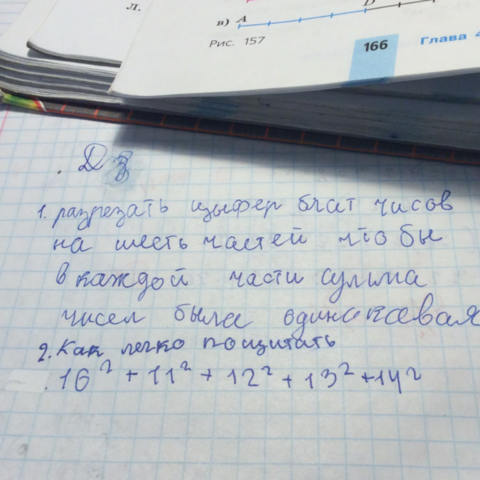 Л.
в) A D
Рис. 157
166 Глава 4
. ДЗ
1. разрезать цыфер блат чисов
на шесть частей что бы
в каждой части сулма
чисел была одинакавая
2. Как легко пощитать
. 16² + 11² + 12² + 13² + 14²